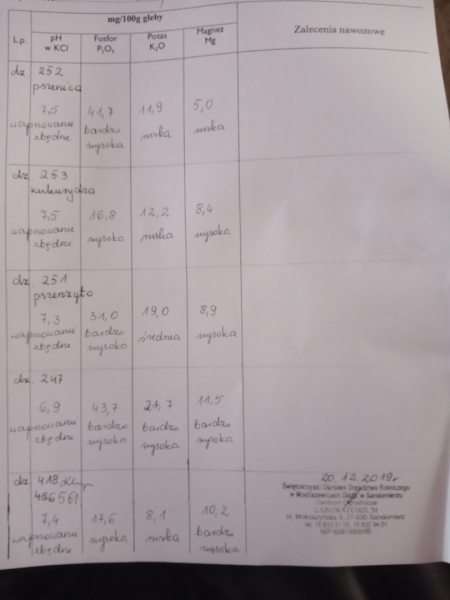 mg/100g gleby
L.p. pH w KCl Fosfor P₂O₅ Potas K₂O Magnez Mg Zalecenia nawozowe
dz. 252
pszenica
7,5 41,7 11,9 5,0
wapnowanie bardzo niska niska
zbędne wysoka
dz 253
kukurydza
7,5 16,8 12,2 8,4
wapnowanie wysoka niska wysoka
zbędne
dz. 251
pszenżyto
7,3 31,0 19,0 8,9
wapnowanie bardzo średnia wysoka
zbędne wysoka
dz. 247
6,9 43,7 24,7 11,5
wapnowanie bardzo bardzo bardzo
zbędne wysoka wysoka wysoka
dz 418
7,4 17,6 8,1 10,2
wapnowanie wysoka niska bardzo
zbędne wysoka
20.12.2019r
Świętokrzyski Ośrodek Doradztwa Rolniczego
w Modliszewicach Oddz. w Sandomierzu
LABORATORIUM
ul. Mokoszyńska 27-600 Sandomierz